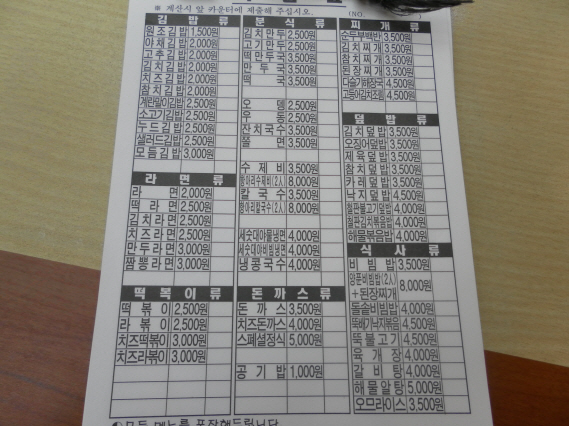 ※ 계산시 앞 카운터에 제출해 주십시오. (NO.
김 밥 류
원조김밥 1,500원
야채김밥 2,000원
고추김밥 2,000원
김치김밥 2,000원
치즈김밥 2,000원
참치김밥 2,000원
계란말이김밥 2,500원
소고기김밥 2,500원
누드김밥 2,500원
샐러드김밥 2,500원
모듬김밥 3,000원
라 면 류
라 면 2,000원
떡라면 2,500원
김치라면 2,500원
치즈라면 2,500원
만두라면 3,000원
짬뽕라면 3,000원
떡 볶 이 류
떡 볶 이 2,500원
라 볶 이 2,500원
치즈떡볶이 3,000원
치즈라볶이 3,000원
분 식 류
김치만두 2,500원
고기만두 2,500원
떡만두국 3,500원
만 두 국 3,500원
떡 국 3,500원
오 뎅 2,500원
우 동 2,500원
잔치국수 3,500원
쫄 면 3,500원
수 제 비 3,500원
항아리수제비(2人) 8,000원
칼 국 수 3,500원
항아리칼국수(2人) 8,000원
세숫대야물냉면 4,000원
세숫대야비빔냉면 4,000원
냉콩국수 4,000원
돈 까 스 류
돈 까 스 3,500원
치즈돈까스 4,000원
스페셜정식 5,000원
공 기 밥 1,000원
찌 개 류
순두부백반 3,500원
김치찌개 3,500원
참치찌개 3,500원
된장찌개 3,500원
다슬기해장국 4,500원
고등어김치조림 4,500원
덮 밥 류
김치덮밥 3,500원
오징어덮밥 3,500원
제육덮밥 3,500원
참치덮밥 3,500원
카레덮밥 3,500원
낙지덮밥 4,500원
철판불고기덮밥 4,000원
철판김치볶음밥 4,000원
해물볶음밥 4,000원
식 사 류
비 빔 밥 3,500원
양푼비빔밥(2人)
+된장찌개 8,000원
돌솥비빔밥 4,000원
뚝배기낙지볶음 4,500원
뚝불고기 4,500원
육 개 장 4,000원
갈 비 탕 4,000원
해물알탕 5,000원
오므라이스 3,500원
모든 메뉴를 포장해드립니다